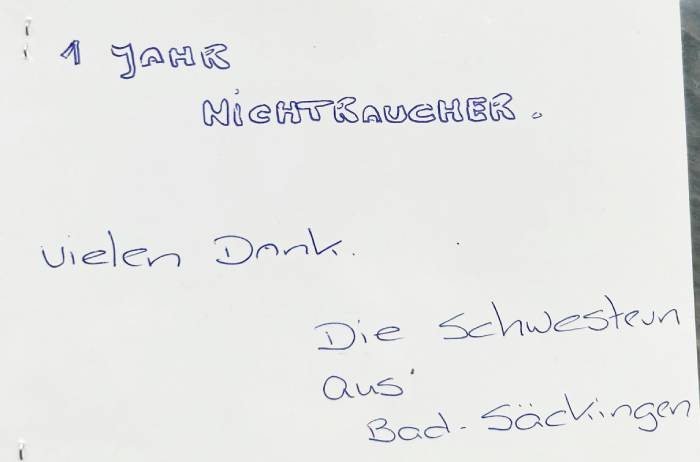 1 JAHR
NiCHTRAUCHER.
vielen Dank.
Die Schwestern
aus
Bad-Säckingen